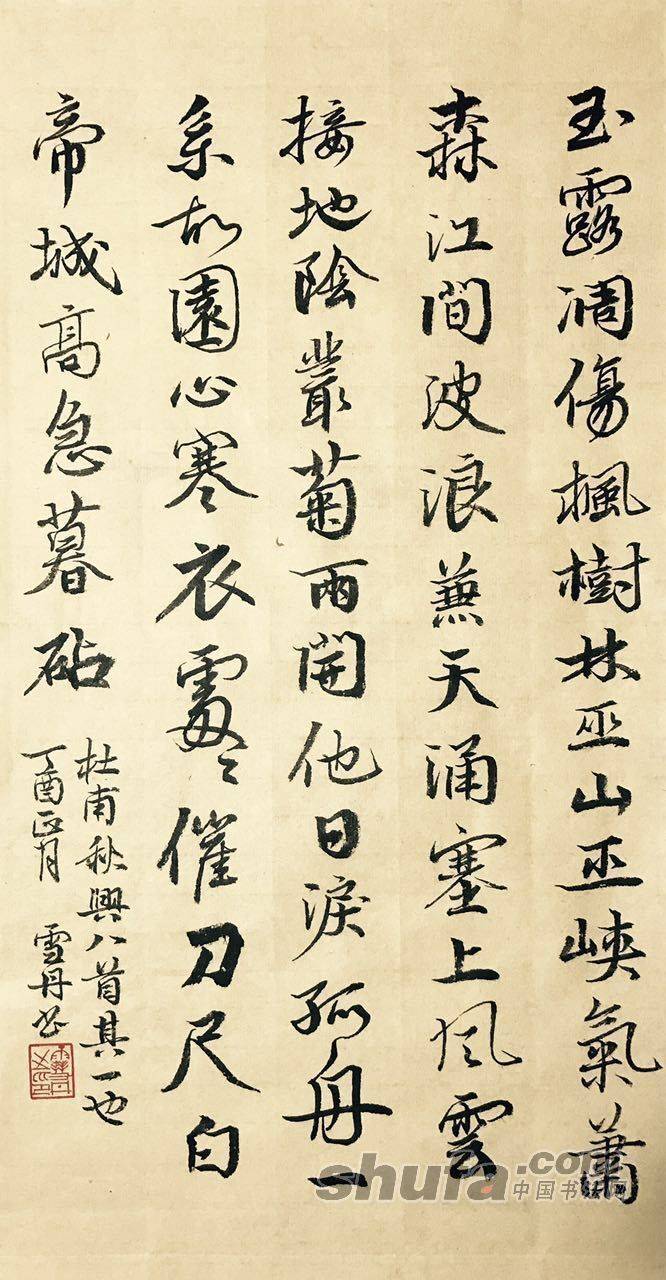 玉露凋傷楓樹林巫山巫峽氣蕭
森江間波浪兼天涌塞上風雲
接地陰叢菊兩開他日淚孤舟一
系故園心寒衣處々催刀尺白
帝城高急暮砧
杜甫秋興八首其一也
丁酉正月 雪丹書
shufa.com
中国书法网